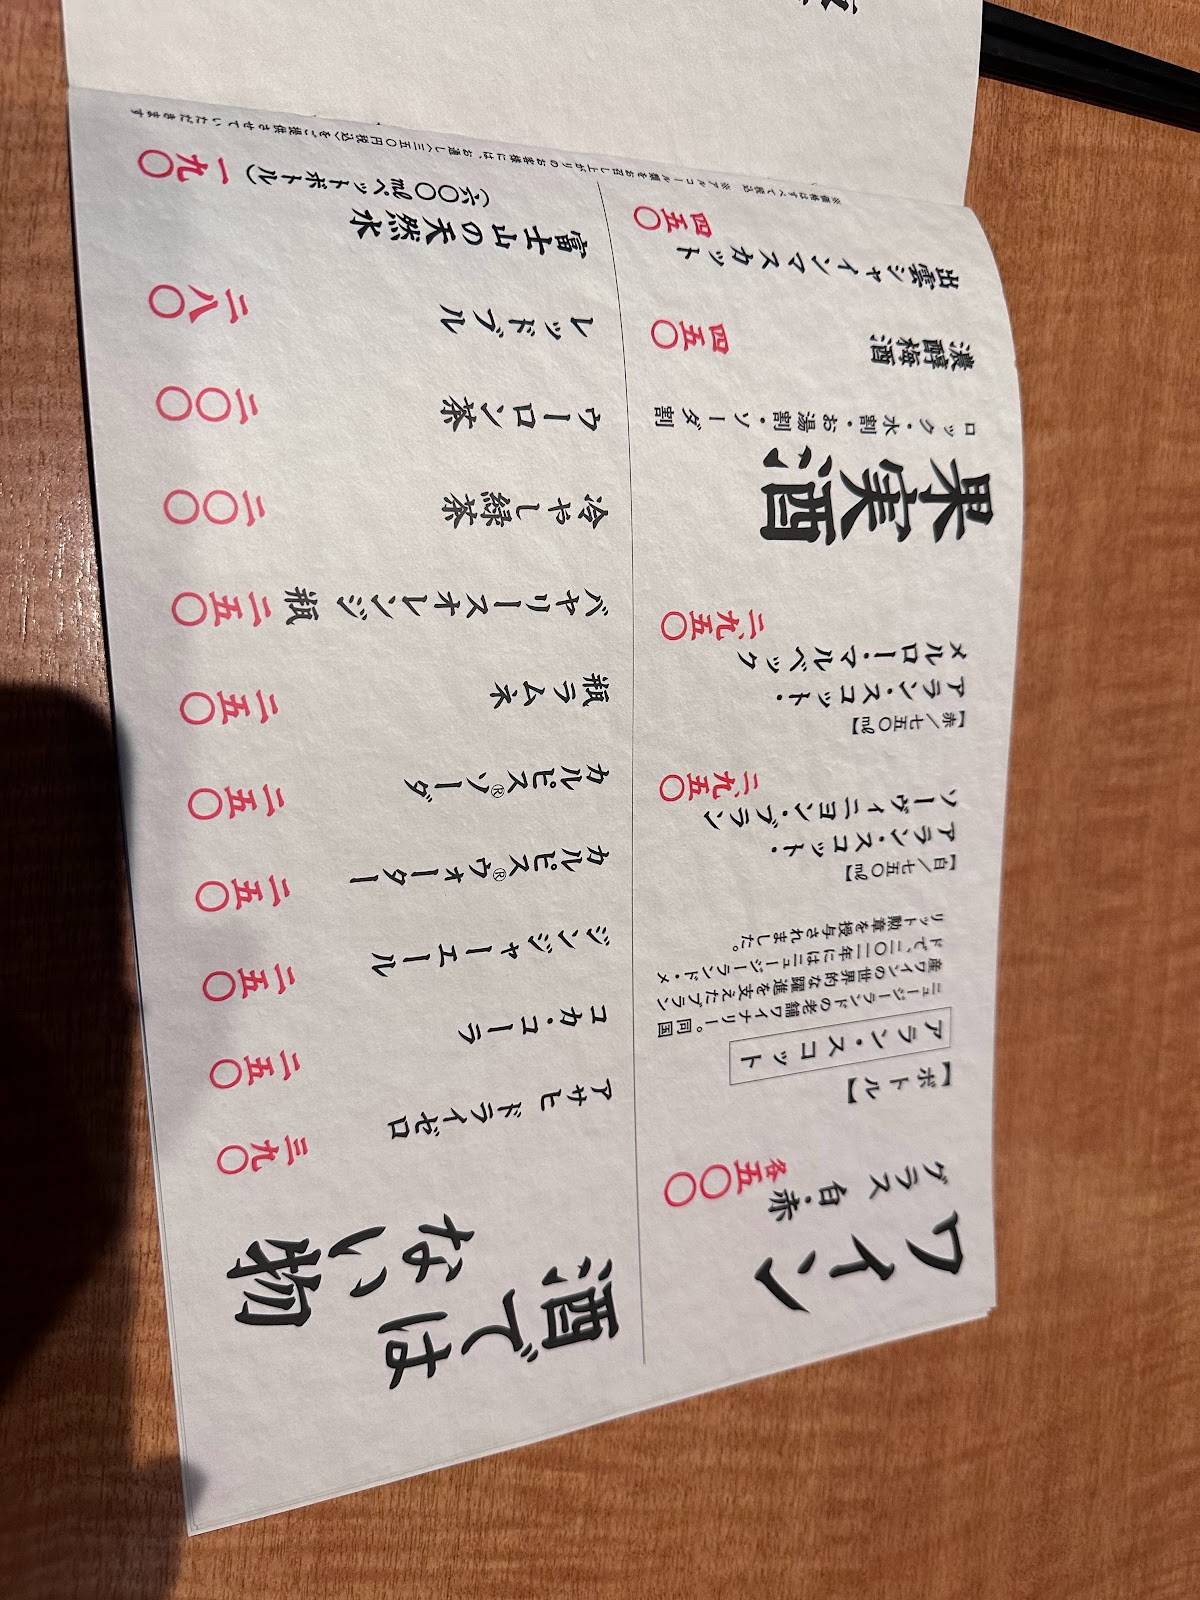 ワイン
グラス 白・赤
各五〇〇
【ボトル】
アラン・スコット
ニュージーランドの老舗ワイナリー。同国
産ワインの世界的な躍進を支えたブラン
ドで、二〇二二年にはニュージーランド・メ
リット勲章を授与されました。
【白／七五〇㎖】
アラン・スコット・
ソーヴィニヨン・ブラン
二、九五〇
【赤／七五〇㎖】
アラン・スコット・
メルロー・マルベック
二、九五〇
果実酒
ロック・水割・お湯割・ソーダ割
濃醇梅酒
四五〇
出雲シャインマスカット
四五〇
酒では
ない物
アサヒ ドライゼロ
三九〇
コカ・コーラ
二五〇
ジンジャーエール
二五〇
カルピス®ウォーター
二五〇
カルピス®ソーダ
二五〇
瓶ラムネ
二五〇
バヤリースオレンジ 瓶
二五〇
冷やし緑茶
二〇〇
ウーロン茶
二〇〇
レッドブル
二八〇
富士山の天然水
（六〇〇㎖ペットボトル）
一九〇
※価格はすべて税込 ※アルコール類をお召し上がりのお客様には、お通し〈三五〇円税込〉をご提供させていただきます